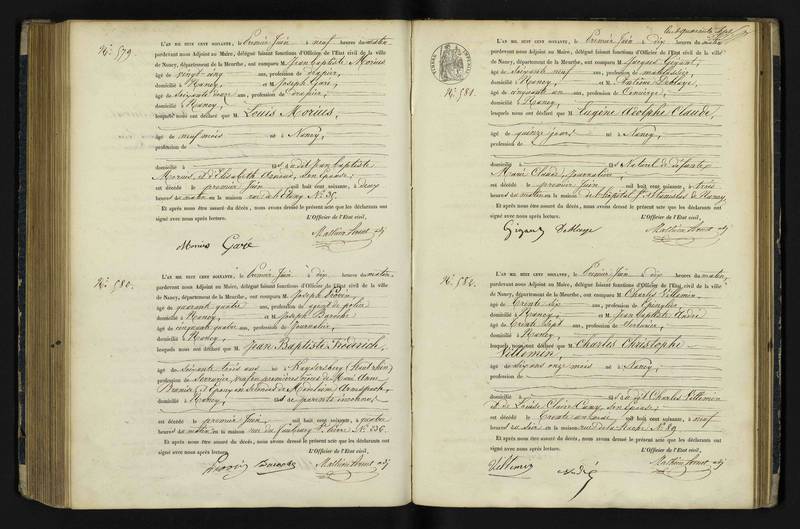 N.° 579.
L'AN MIL HUIT CENT SOIXANTE, le Premier Juin à neuf heures du matin,
pardevant nous Adjoint au Maire, délégué faisant fonctions d'Officier de l'État civil de la ville
de Nancy, département de la Meurthe, ont comparu M. Jean Baptiste Morius
âgé de vingt-cinq ans, profession de drapier,
domicilié à Nancy, et M. Joseph Garé,
âgé de soixante ans, profession de drapier,
domicilié à Nancy,
lesquels nous ont déclaré que M. Louis Morius,
âgé de neuf mois né à Nancy,
profession de
domicilié à fils dudit Jean Baptiste
Morius, et d'Elisabeth son épouse;
est décédé le premier Juin mil huit cent soixante, à deux
heures du matin en la maison rue de N.° 35.
Et après nous être assuré du décès, nous avons dressé le présent acte que les déclarants ont
signé avec nous après lecture. L'Officier de l'État civil,
Morius Garé
N.° 580.
L'AN MIL HUIT CENT SOIXANTE, le Premier Juin à dix heures du matin,
pardevant nous Adjoint au Maire, délégué faisant fonctions d'Officier de l'État civil de la ville
de Nancy, département de la Meurthe, ont comparu M. Joseph
âgé de quarante quatre ans, profession de agent de police
domicilié à Nancy, et M. Joseph
âgé de cinquante quatre ans, profession de Journalier,
domicilié à Nancy,
lesquels nous ont déclaré que M. Jean Baptiste Fréderich,
âgé de soixante trois ans né à Kaysersberg (Haut Rhin)
profession de Serrurier, veuf en premières noces de Marie Anne
et époux en secondes de Madeleine
domicilié à Nancy, et de parents inconnus;
est décédé le premier Juin mil huit cent soixante, à quatre
heures du matin en la maison rue du faubourg S.t Pierre N.° 236.
Et après nous être assuré du décès, nous avons dressé le présent acte que les déclarants ont
signé avec nous après lecture. L'Officier de l'État civil,
N.° 581.
L'AN MIL HUIT CENT SOIXANTE, le Premier Juin à dix heures du matin,
pardevant nous Adjoint au Maire, délégué faisant fonctions d'Officier de l'État civil de la ville
de Nancy, département de la Meurthe, ont comparu M. Jacques
âgé de soixante neuf ans, profession de matelassier,
domicilié à Nancy, et M. Deblaye
âgé de cinquante un ans, profession de Concierge,
domicilié à Nancy,
lesquels nous ont déclaré que M. Eugène Adolphe Claude,
âgé de quinze jours né à Nancy,
profession de
domicilié à fils Naturel de défunte
Marie Claude, Journalière,
est décédé le premier Juin mil huit cent soixante, à trois
heures du matin en la maison de l'hôpital S.t Stanislas de Nancy.
Et après nous être assuré du décès, nous avons dressé le présent acte que les déclarants ont
signé avec nous après lecture. L'Officier de l'État civil,
Deblaye
N.° 582.
L'AN MIL HUIT CENT SOIXANTE, le Premier Juin à dix heures du matin,
pardevant nous Adjoint au Maire, délégué faisant fonctions d'Officier de l'État civil de la ville
de Nancy, département de la Meurthe, ont comparu M. Charles Villemin
âgé de trente six ans, profession de
domicilié à Nancy, et M. Jean Baptiste André
âgé de trente sept ans, profession de Serrurier,
domicilié à Nancy,
lesquels nous ont déclaré que M. Charles Christophe
Villemin,
âgé de six ans onze mois né à Nancy,
profession de
domicilié à fils dudit Charles Villemin
et de Louise Claire Cuny, son épouse;
est décédé le trente un mai mil huit cent soixante, à neuf
heures du soir en la maison rue de N.° 89.
Et après nous être assuré du décès, nous avons dressé le présent acte que les déclarants ont
signé avec nous après lecture. L'Officier de l'État civil,
Villemin André